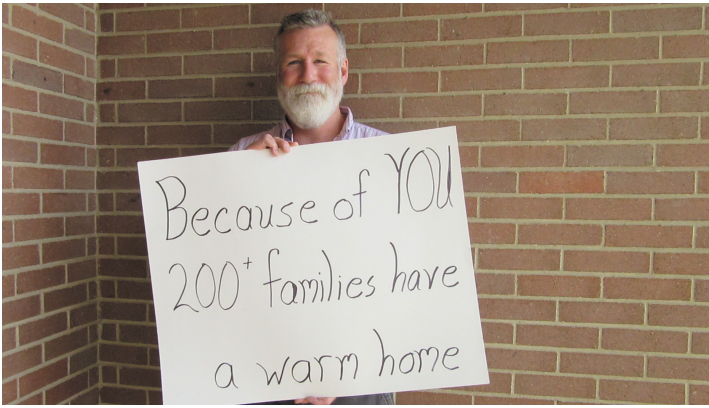 Because of YOU
200+ families have
a warm home